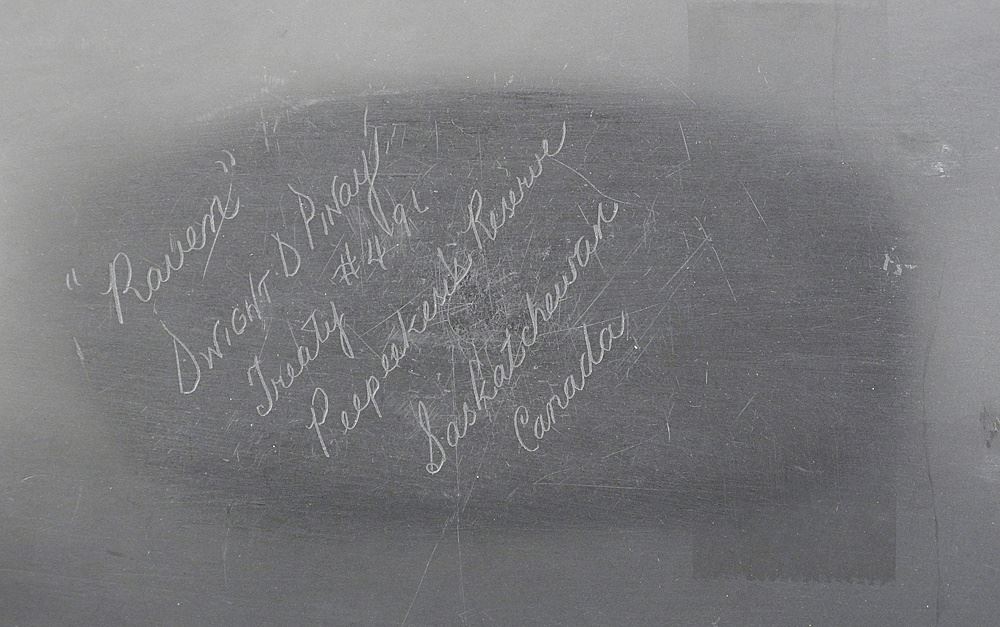 "Raven"
DWIGHT D PINAY
Treaty #491
Peepeekesis Reserve
Saskatchewan
Canada